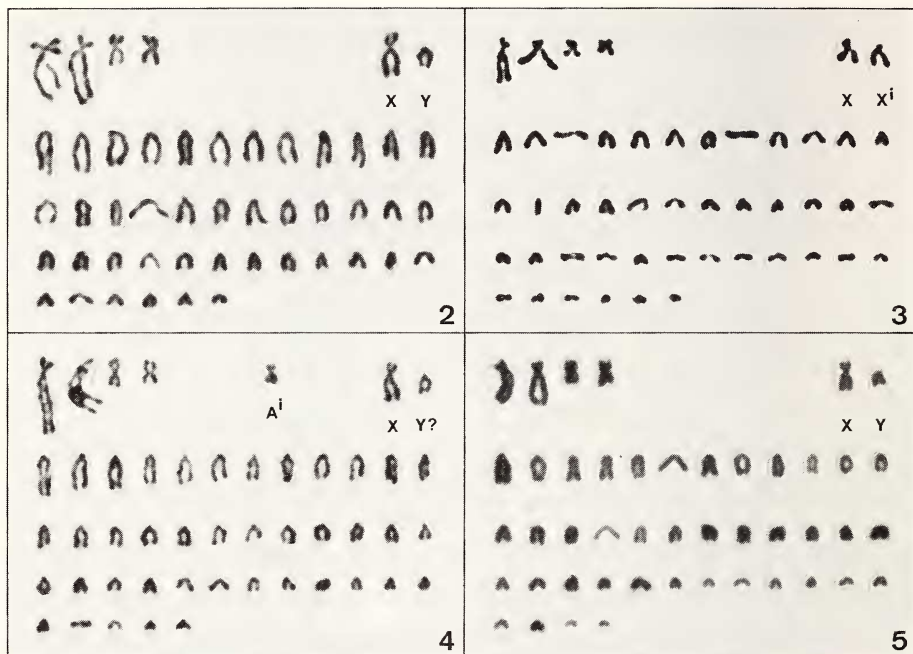 X Y
2
X Xⁱ
3
Aⁱ
X Y?
4
X Y
5